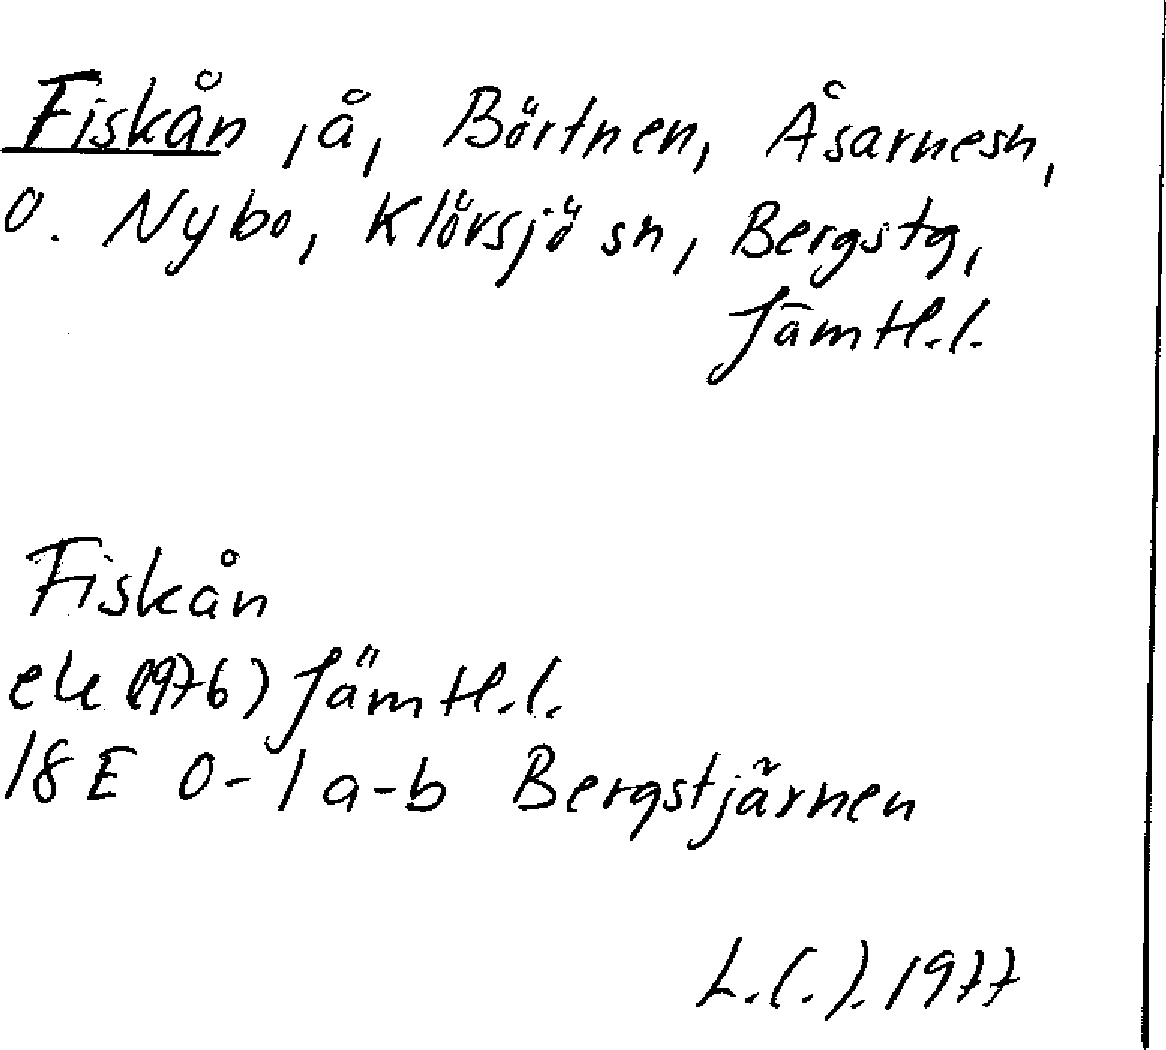 Fiskån, å, Börtnen, Åsarnesn,
o. Nybo, Klövsjö sn, Bergstg,
Jämtl.l.
Fiskån
ek (1976) Jämtl.l.
18E 0-1 a-b Bergstjärnen
1977